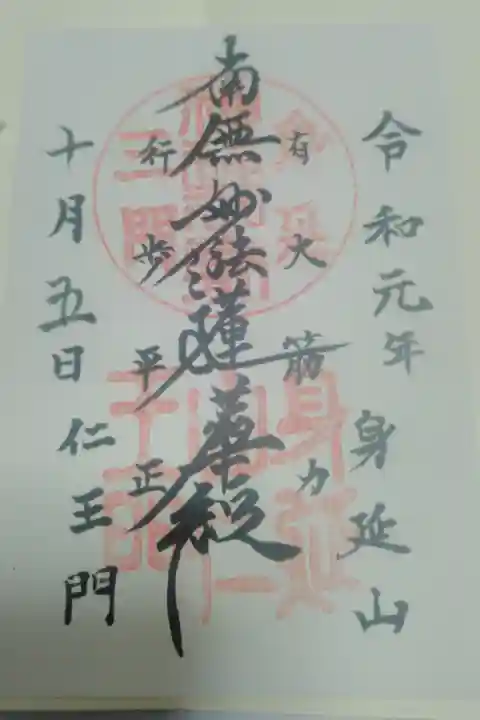 令和元年 身延山
有大筋力
南無妙法蓮華経
行歩平正
十月五日 仁王門
身延山